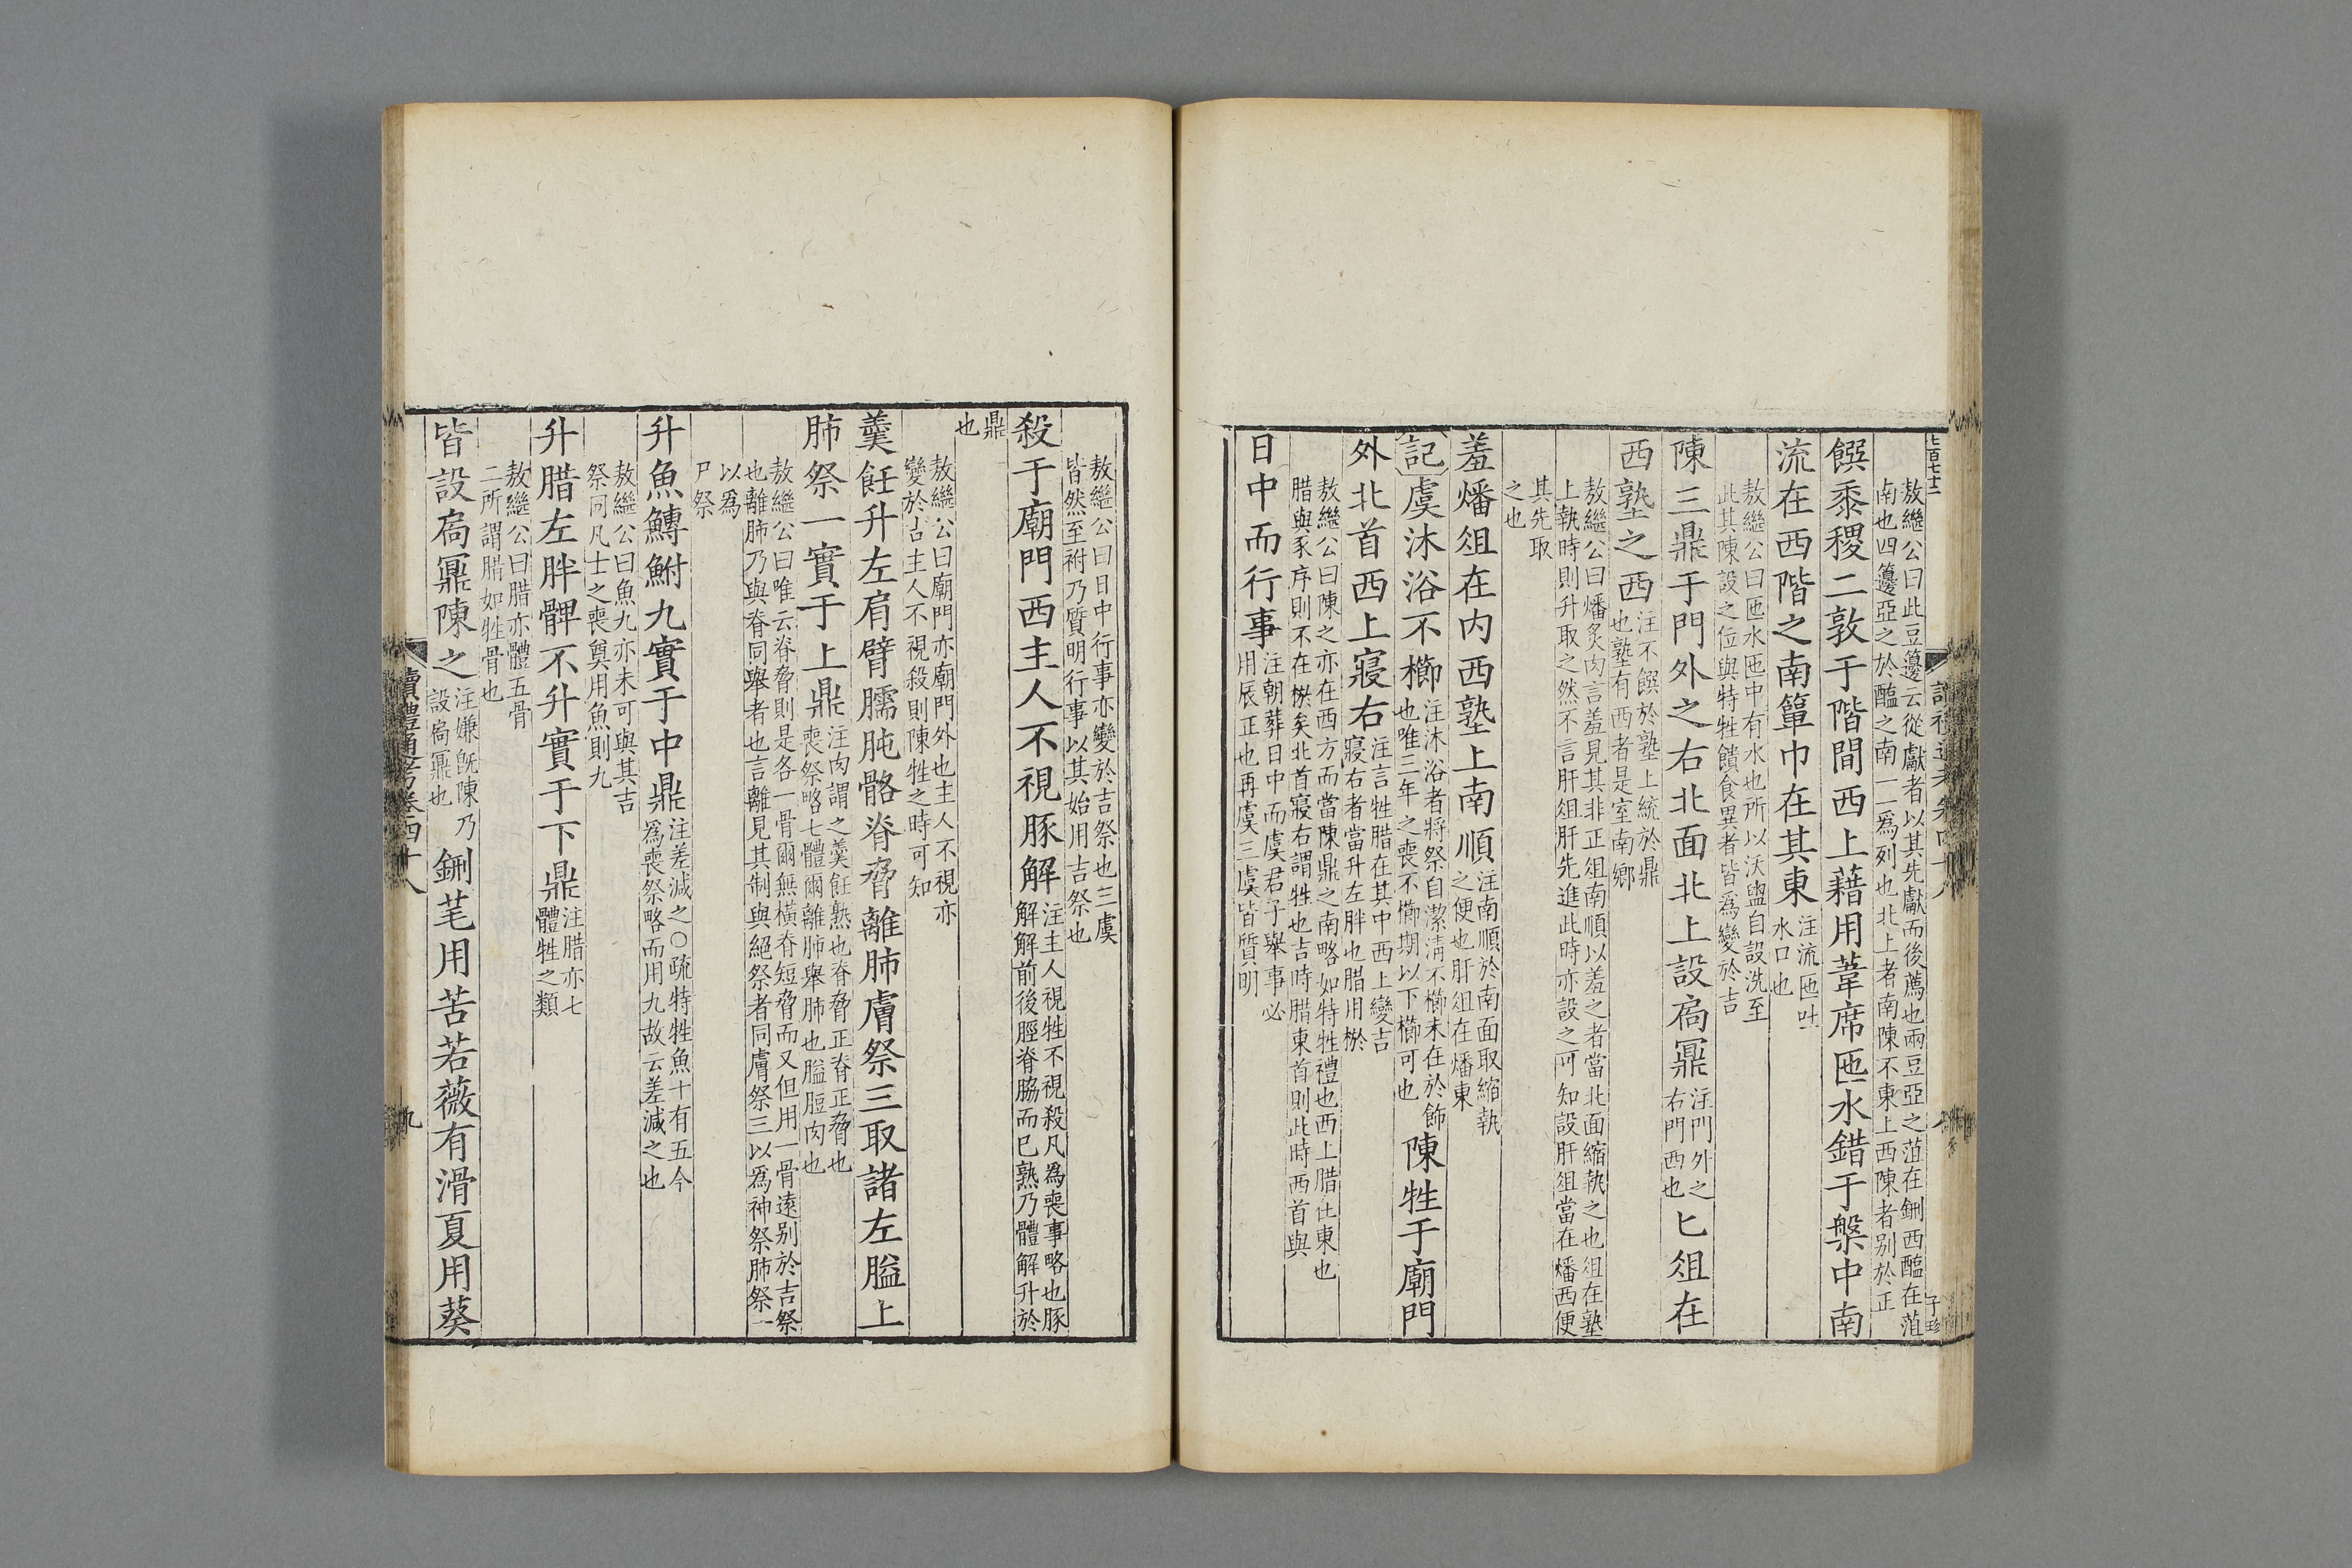 敖繼公曰此豆籩云從獻者以其先獻而後薦也兩豆亞之菹在鉶西醢在菹
南也四籩亞之於醢之南一一爲列也北上者南陳不東上西陳者别於正
饌黍稷二敦于階間西上藉用葦席匜水錯于槃中南
流在西階之南簞巾在其東注流匜吐
水口也
敖繼公曰匜水匜中有水也所以沃盥自設洗至
此其陳設之位與特牲饋食異者皆爲變於吉
陳三鼎于門外之右北面北上設扃鼏注門外之
右門西也
匕俎在
西塾之西注不饌於塾上統於鼎
也塾有西者是室南鄉
敖繼公曰燔炙肉言羞見其非正俎南順以羞之者當北面縮執之也俎在塾
上執時則升取之然不言肝俎肝先進此時亦設之可知設肝俎當在燔西便
其先取
之也
羞燔俎在内西塾上南順注南順於南面取縮執
之便也肝俎在燔東
記虞沐浴不櫛注沐浴者將祭自潔淸不櫛未在於飾
也唯三年之喪不櫛期以下櫛可也
陳牲于廟門
外北首西上寢右注言牲腊在其中西上變吉
寢右者當升左胖也腊用棜
敖繼公曰陳之亦在西方而當陳鼎之南略如特牲禮也西上腊在東也
腊與豕序則不在棜矣北首寢右謂牲也吉時腊東首則此時西首與
日中而行事注朝葬日中而虞君子舉事必
用辰正也再虞三虞皆質明
敖繼公曰日中行事亦變於吉祭也三虞
皆然至祔乃質明行事以其始用吉祭也
殺于廟門西主人不視豚解注主人視牲不視殺凡爲喪事略也豚
解解前後脛脊脇而已熟乃體解升於
鼎
也
敖繼公曰廟門亦廟門外也主人不視亦
變於吉主人不視殺則陳牲之時可知
羹飪升左肩臂臑肫骼脊脅離肺膚祭三取諸左膉上
肺祭一實于上鼎注肉謂之羹飪熟也脊脅正脊正脅也
喪祭略七體爾離肺舉肺也膉脰肉也
敖繼公曰唯云脊脅則是各一骨爾無橫脊短脅而又但用一骨遠别於吉祭
也離肺乃與脊同舉者也言離見其制與絕祭者同膚祭三以爲神祭肺祭一
以爲
尸祭
升魚鱄鮒九實于中鼎注差減之○疏特牲魚十有五今
爲喪祭略而用九故云差減之也
敖繼公曰魚九亦未可與其吉
祭同凡士之喪奠用魚則九
升腊左胖髀不升實于下鼎注腊亦七
體牲之類
敖繼公曰腊亦體五骨
二所謂腊如牲骨也
皆設扃鼏陳之注嫌旣陳乃
設扃鼏也
鉶芼用苦若薇有滑夏用葵
讀禮通考卷四十八
九